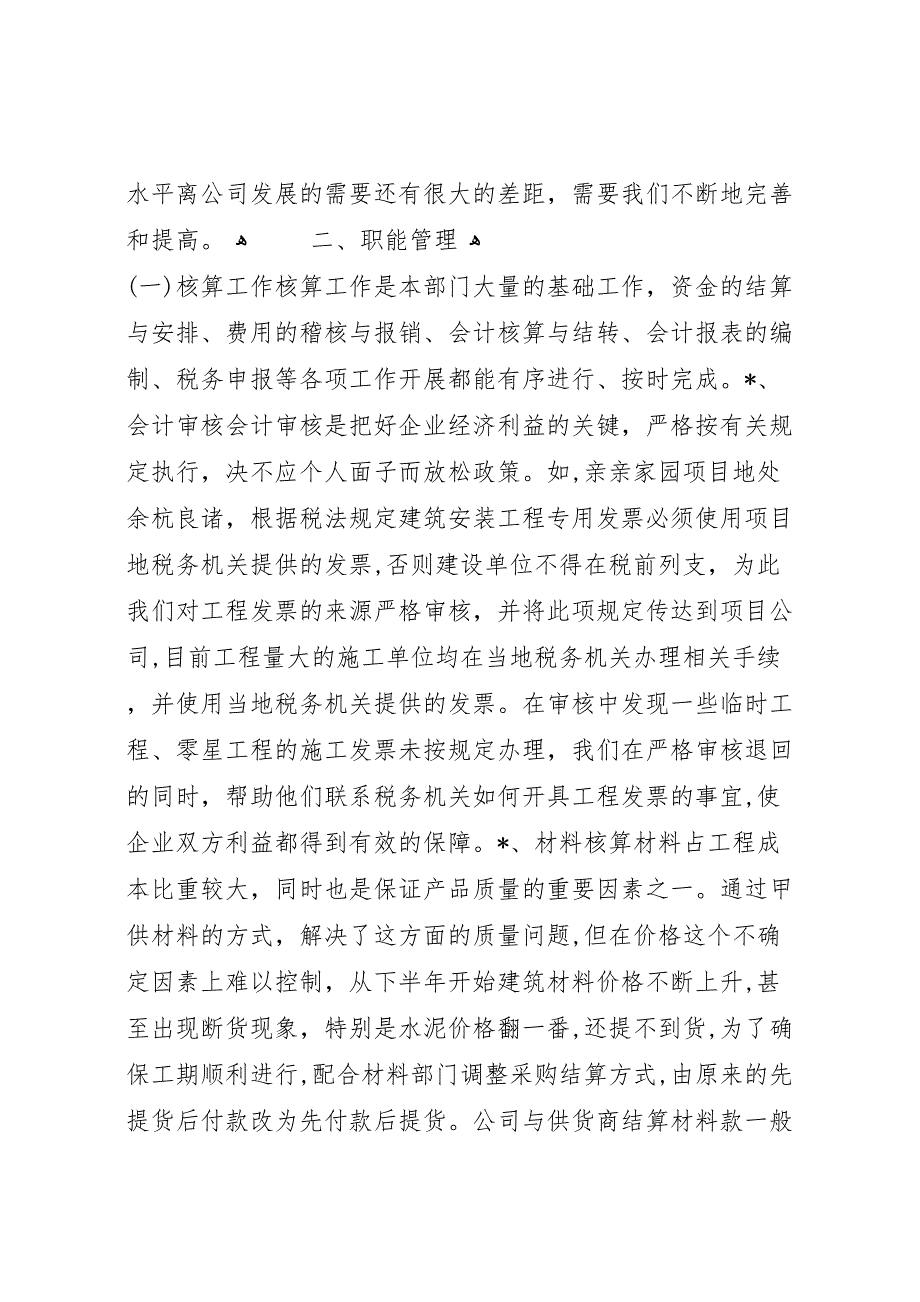 水平离公司发展的需要还有很大的差距，需要我们不断地完善
和提高。 ﻫ 二、职能管理 ﻫ
(一)核算工作核算工作是本部门大量的基础工作，资金的结算
与安排、费用的稽核与报销、会计核算与结转、会计报表的编
制、税务申报等各项工作开展都能有序进行、按时完成。*、
会计审核会计审核是把好企业经济利益的关键，严格按有关规
定执行，决不应个人面子而放松政策。如,亲亲家园项目地处
余杭良诸，根据税法规定建筑安装工程专用发票必须使用项目
地税务机关提供的发票,否则建设单位不得在税前列支，为此
我们对工程发票的来源严格审核，并将此项规定传达到项目公
司,目前工程量大的施工单位均在当地税务机关办理相关手续
，并使用当地税务机关提供的发票。在审核中发现一些临时工
程、零星工程的施工发票未按规定办理，我们在严格审核退回
的同时，帮助他们联系税务机关如何开具工程发票的事宜,使
企业双方利益都得到有效的保障。*、材料核算材料占工程成
本比重较大，同时也是保证产品质量的重要因素之一。通过甲
供材料的方式，解决了这方面的质量问题,但在价格这个不确
定因素上难以控制，从下半年开始建筑材料价格不断上升,甚
至出现断货现象，特别是水泥价格翻一番,还提不到货,为了确
保工期顺利进行,配合材料部门调整采购结算方式,由原来的先
提货后付款改为先付款后提货。公司与供货商结算材料款一般